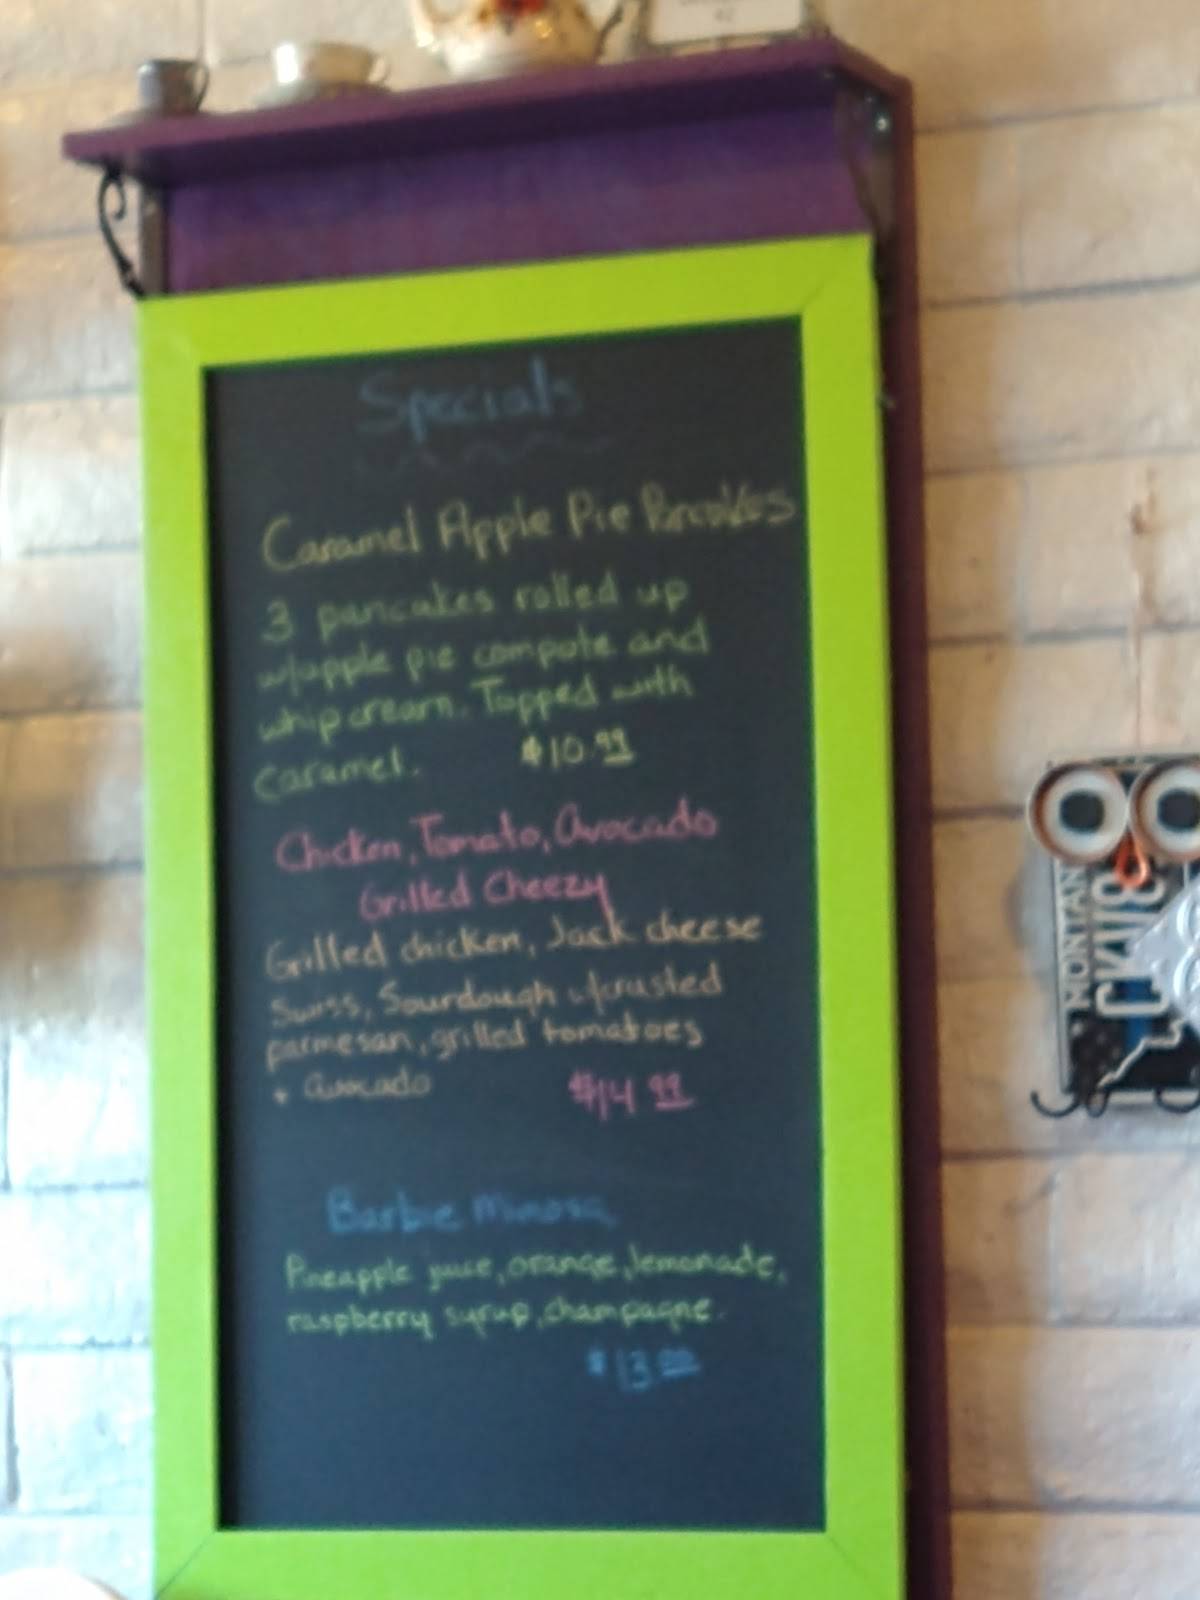 Specials
Caramel Apple Pie Pancakes
3 pancakes rolled up
w/apple pie compote and
whipcream. Topped with
caramel. $10.99
Chicken, Tomato, Avocado
Grilled Cheezy
Grilled chicken, Jack cheese
Swiss, Sourdough w/crusted
parmesan, grilled tomatoes
+ Avocado $14.99
Barbie Mimosa
Pineapple juice, orange, lemonade,
raspberry syrup, champagne.
$13.00
MONTAN